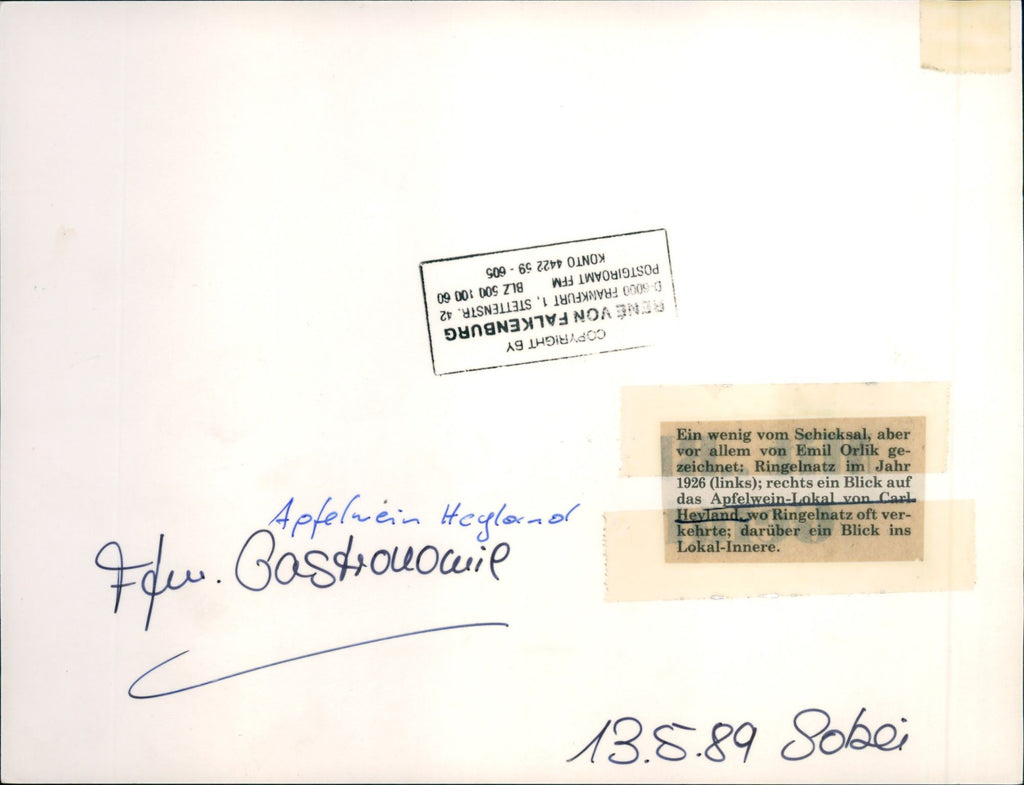 COPYRIGHT BY
RENÉ VON FALKENBURG
D-6000 FRANKFURT 1, STETTENSTR. 42
POSTGIROAMT FFM BLZ 500 100 60
KONTO 4422 59 - 605
Ein wenig vom Schicksal, aber
vor allem von Emil Orlik ge-
zeichnet: Ringelnatz im Jahr
1926 (links); rechts ein Blick auf
das Apfelwein-Lokal von Carl
Heyland, wo Ringelnatz oft ver-
kehrte; darüber ein Blick ins
Lokal-Innere.
Apfelwein Heyland
Ffm. Gastronomie
13.5.89 Sobei